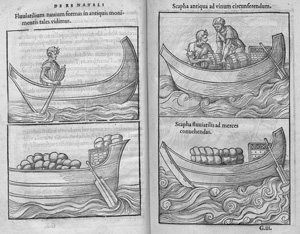 DE RE NAVALI
Fluuiatilium nauium formas in antiquis monimentis
tales vidimus.
Scapha antiqua ad vinum circunferendum.
Scapha fluuiatilis ad merces
conuehendas.
G.iii.